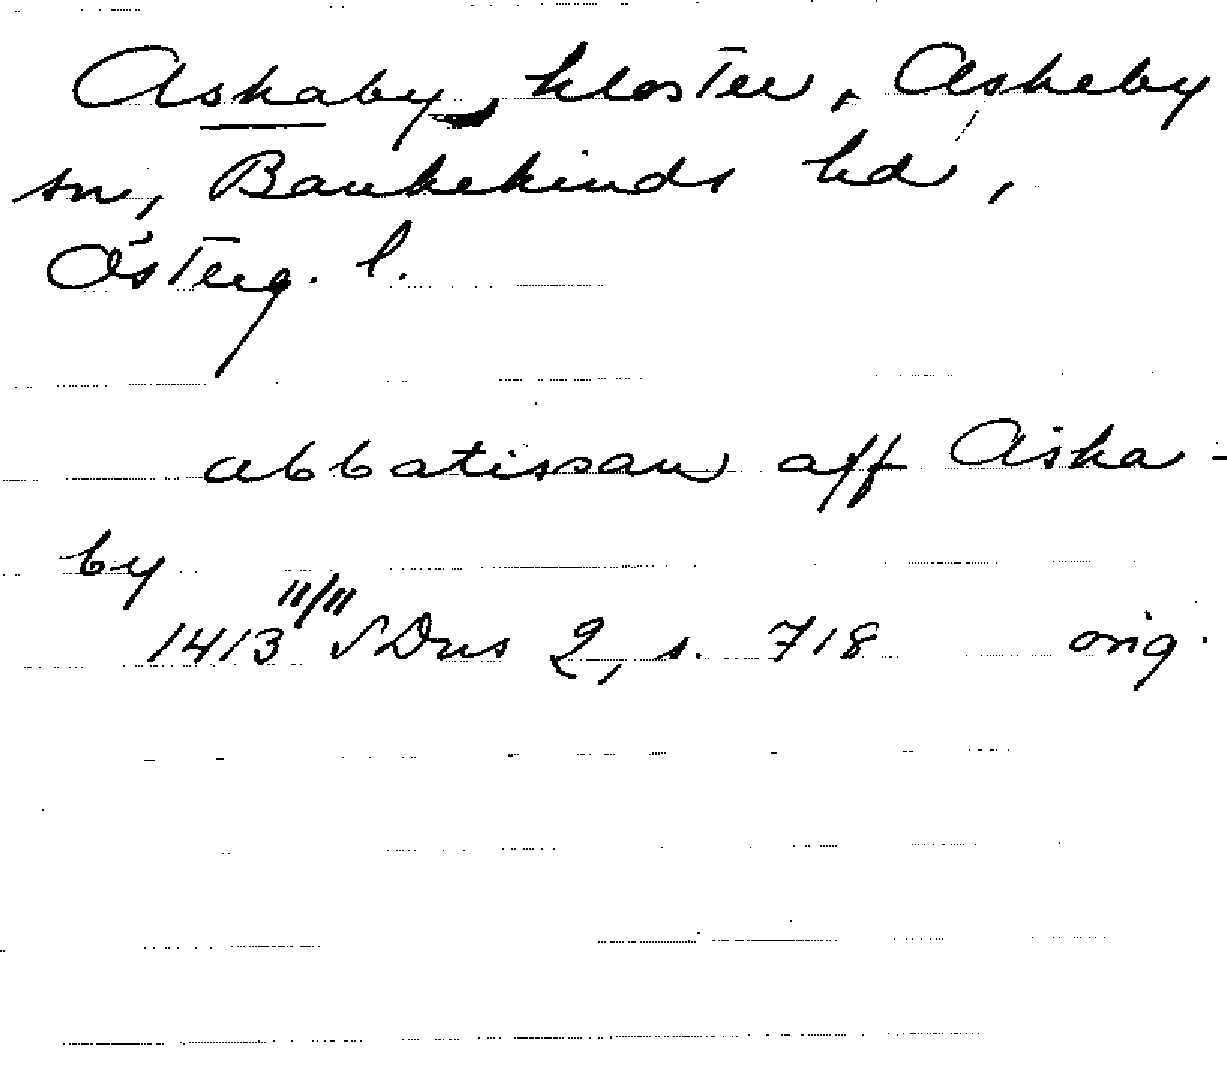 Askaby, kloster, Askeby
sn, Bankekinds hd,
Österg. l.
abbatissan aff Aska-
by
1413 11/11 SDns 2, s. 718 orig.